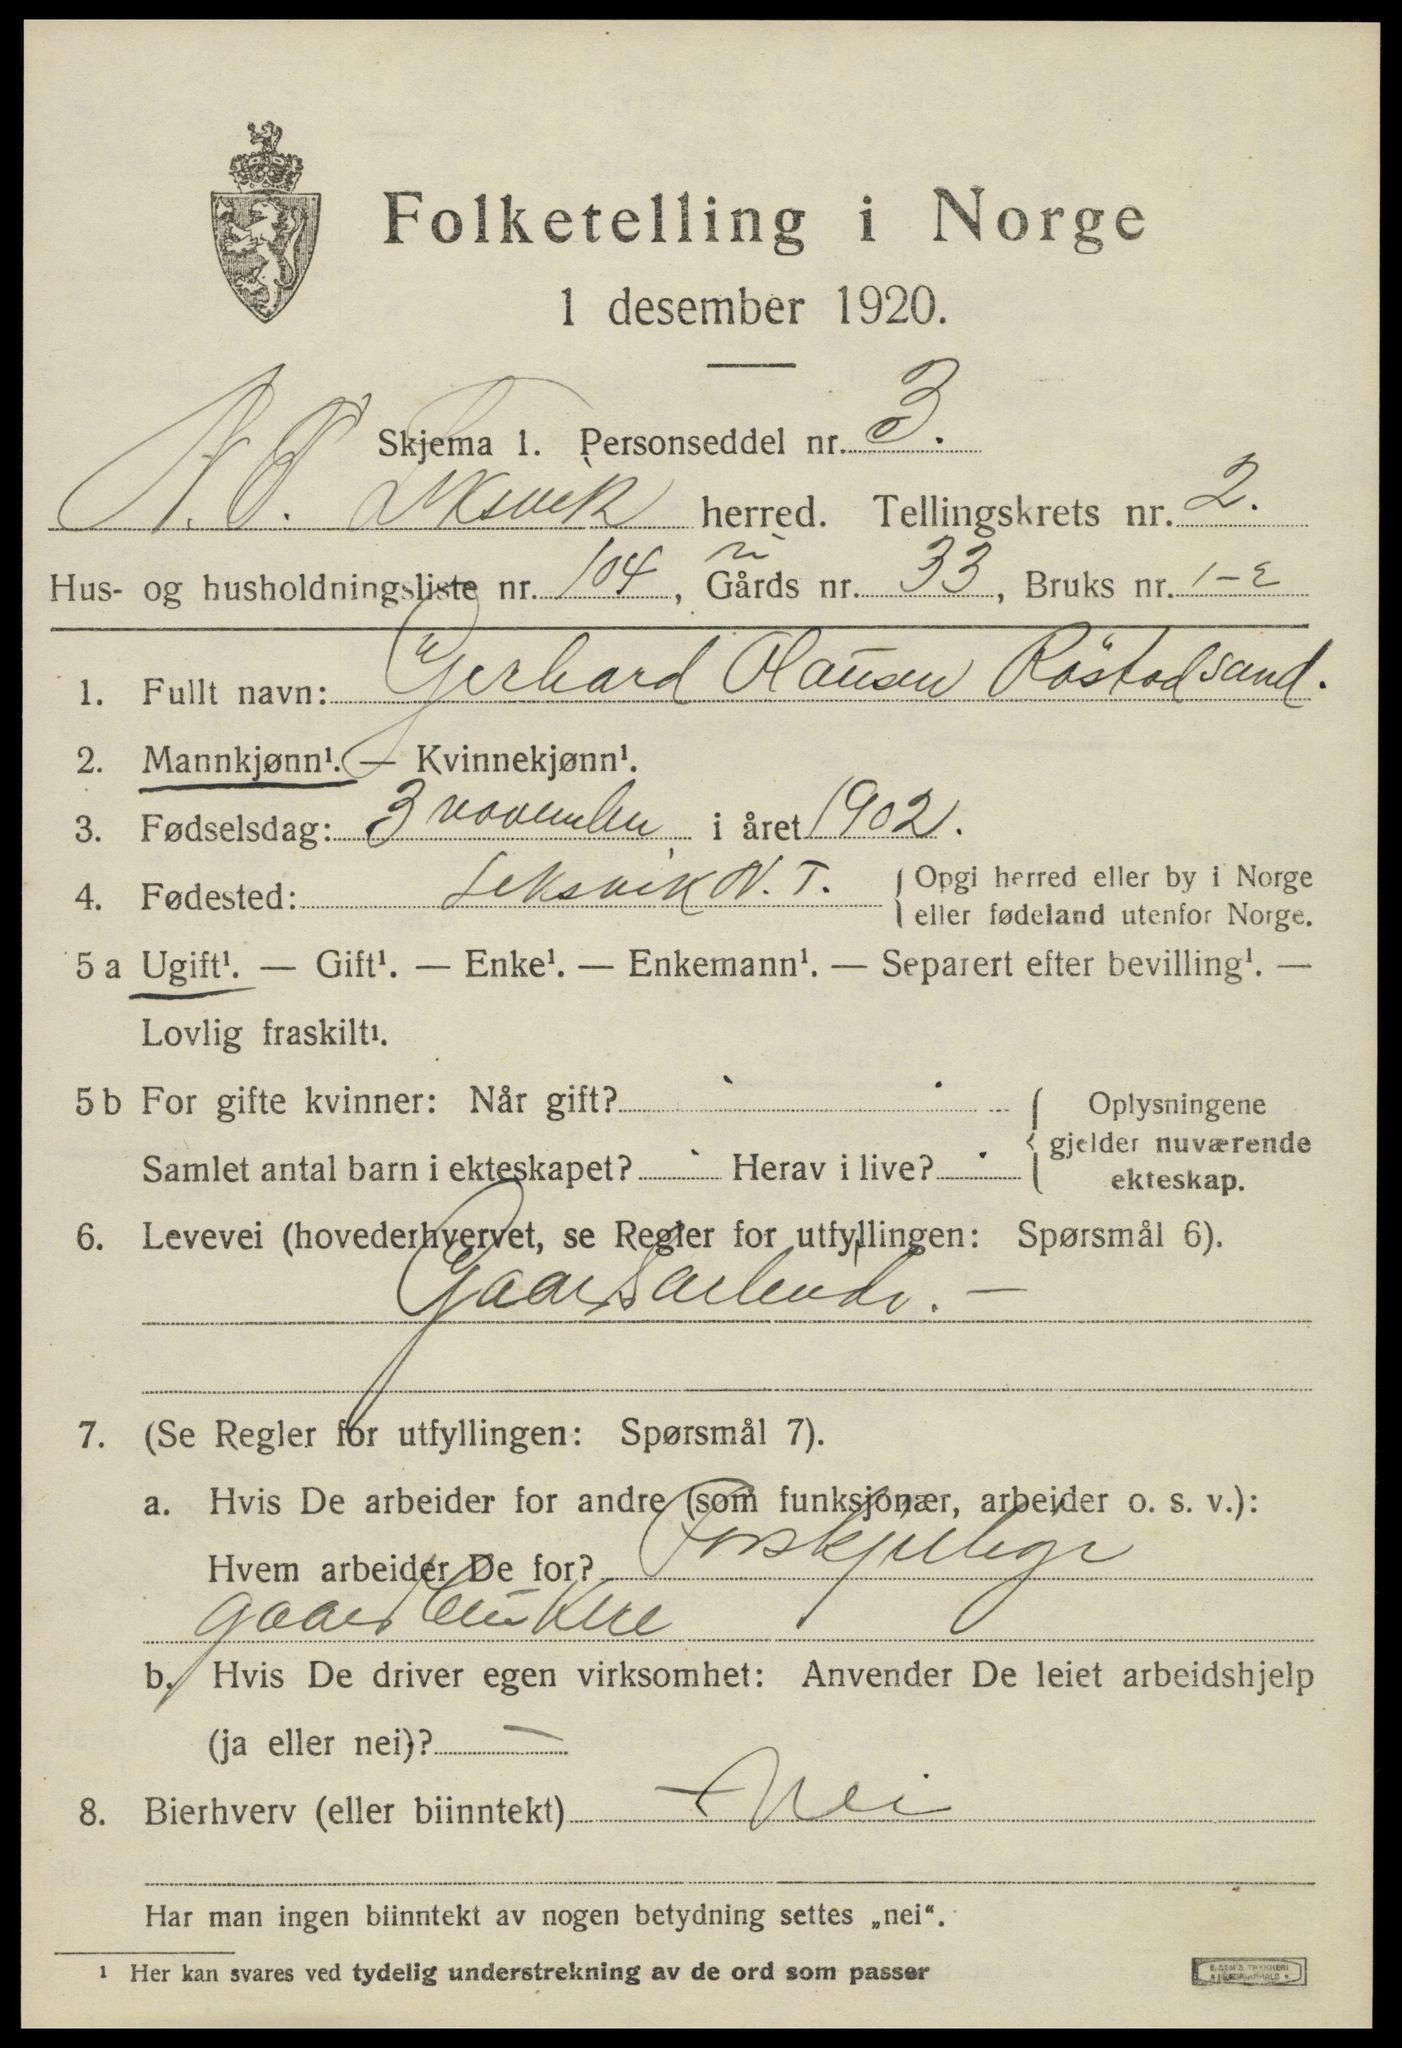 Folketelling i Norge
1 desember 1920.
Skjema 1. Personseddel nr. 3.
Leksvik herred. Tellingskrets nr. 2.
Hus- og husholdningsliste nr. 104, Gårds nr. 33, Bruks nr. 1-2
1. Fullt navn: Gerhard Olausen Röstadsand.
2. Mannkjønn¹. — Kvinnekjønn¹.
3. Fødselsdag: 3 november i året 1902.
4. Fødested: Leksvik N. T. Opgi herred eller by i Norge
eller fødeland utenfor Norge.
5 a Ugift¹. — Gift¹. — Enke¹. — Enkemann¹. — Separert efter bevilling¹. —
Lovlig fraskilt¹.
5 b For gifte kvinner: Når gift? Oplysningene
gjelder nuværende
Samlet antal barn i ekteskapet? Herav i live? ekteskap.
6. Levevei (hovederhvervet, se Regler for utfyllingen: Spørsmål 6).
Gaardsarbeide. —
7. (Se Regler for utfyllingen: Spørsmål 7).
a. Hvis De arbeider for andre (som funksjonær, arbeider o. s. v.):
Hvem arbeider De for? Forskjellige
gaardbrukere
b. Hvis De driver egen virksomhet: Anvender De leiet arbeidshjelp
(ja eller nei)? —
8. Bierhverv (eller biinntekt) Nei
Har man ingen biinntekt av nogen betydning settes „nei“.
¹ Her kan svares ved tydelig understrekning av de ord som passer
E. SEM'S TRYKKERI
FREDRIKSHALD